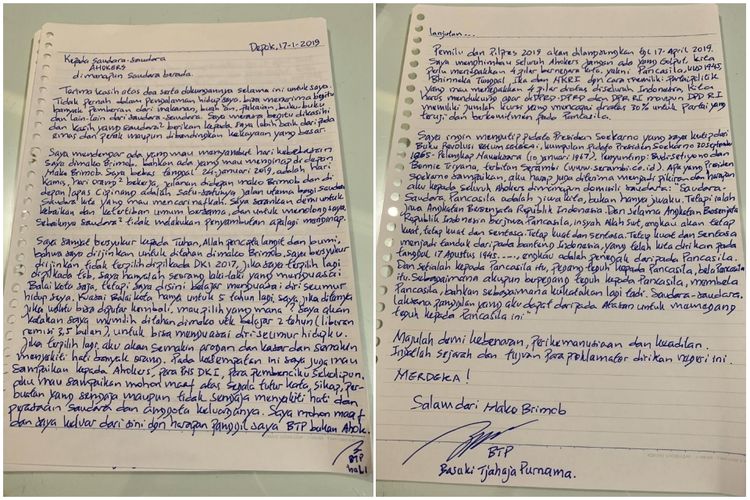 Depok, 17-1-2019
Kepada Saudara-saudara
AHOKERS
dimanapun saudara berada.
Terima kasih atas doa serta dukungannya selama ini untuk saya.
Tidak pernah dalam pengalaman hidup saya, bisa menerima begitu
banyak pemberian dari makanan, buah an, pakaian, buku-buku
dan lain-lain dari saudara-saudara. Saya merasa begitu dikasihi
dan kasih yang saudara² berikan kepada saya lebih baik daripada
emas dan perak maupun dibandingkan kekayaan yang besar.
Saya mendengar ada yang mau menyambut hari kebebasan
Saya dimako Brimob, bahkan ada yang mau menginap di depan
Mako Brimob. Saya bebas tanggal 24-januari 2019, adalah hari
Kamis, hari orang² bekerja, jalanan didepan mako Brimob dan di
depan lapas Cipinang adalah Satu-satunya jalan utama bagi saudara-
Saudara kita yang mau mencari nafkah. Saya sarankan demi untuk
kebaikan dan ketertiban umum bersama, dan untuk menolong saya,
Sebaiknya saudara² tidak melakukan penyambutan apalagi menginap.
Saya sangat bersyukur kepada Tuhan, Allah pencipta langit dan bumi,
bahwa saya diijinkan untuk ditahan di mako Brimob. Saya bersyukur
diijinkan tidak terpilih di pilkada DKI 2017, jika saya terpilih lagi
di pilkada tsb, Saya hanyalah seorang laki-laki yang menguasai
Balai kota saja, tetapi saya disini belajar menguasai diri seumur
hidup saya. Kuasai Balai kota hanya untuk 5 tahun lagi, saya jika ditanya
jika waktu bisa diputar kembali, mau pilih yang mana? Saya akan
katakan saya memilih ditahan di mako utk belajar 2 tahun (liburan
remisi 3,5 bulan), untuk bisa menguasai diri seumur hidupku.
Jika terpilih lagi, aku akan semakin arogan dan kasar dan semakin
menyakiti hati banyak orang. Pada kesempatan ini saya juga mau
sampaikan kepada Ahokers, para PNS DKI, para pembenciku sekalipun,
aku mau sampaikan mohon maaf atas segala tutur kata, sikap, per-
buatan yang sengaja maupun tidak sengaja menyakiti hati dan
perasaan Saudara dan anggota keluarganya. Saya mohon maaf
dan saya keluar dari sini dgn harapan panggil saya BTP bukan Ahok.
BTP
hal. 1
Lanjutan...
Pemilu dan Pilpres 2019 akan dilangsungkan tgl 17 April 2019.
Saya menghimbau seluruh Ahokers jangan ada yang Golput, kita
perlu menegakkan 4 pilar bernegara kita, yakni Pancasila, UUD 1945,
Bhinneka Tunggal Ika dan NKRI dgn cara memiliki partai politik
yang mau menegakkan 4 pilar diatas di seluruh Indonesia. Kita
harus mendukung agar di DPRD-DPRD dan DPR RI maupun DPD RI
memiliki jumlah kursi yang mencapai diatas 30% untuk Partai yang
teruji dan berkomitmen pada Pancasila.
Saya ingin mengutip pidato Presiden Soekarno yang saya kutip dari
Buku Revolusi belum selesai, kumpulan Pidato Presiden Soekarno 30 september
1965 - Pelengkap Nawaksara (10 januari 1967). Penyunting: Budi setiyono dan
Bonnie Triyana terbitan Serambi (www.serambi.co.id). Apa yang Presiden
Soekarno sampaikan, aku harap juga diterima menjadi pikiran dan harapan
aku kepada seluruh Ahokers dimanapun domisili saudara: "Saudara-
Saudara, Pancasila adalah jiwa kita, bukan hanya jiwaku. Tetapi ialah
jiwa Angkatan Bersenjata Republik Indonesia. Dan selama Angkatan Bersenjata
Republik Indonesia berjiwa Pancasila, insyah Allah Swt, engkau akan tetap
kuat, tetap kuat dan sentosa. Tetap kuat dan sentosa. Tetap kuat dan sentosa
menjadi tanduk daripada banteng Indonesia, yang telah kita dirikan pada
tanggal 17 Agustus 1945. ...., engkau adalah penegak daripada Pancasila.
Dan setialah kepada Pancasila itu, pegang teguh kepada Pancasila, bela Pancasila
itu. Sebagaimana akupun berpegang teguh kepada Pancasila, membela
Pancasila, bahkan sebagaimana kukatakan lagi tadi. Saudara-saudara,
laksana panggilan yang aku dapat daripada Atasan untuk memegang
teguh kepada Pancasila ini."
Majulah demi kebenaran, perikemanusiaan dan keadilan.
Ingatlah sejarah dan tujuan Para proklamator dirikan negeri ini.
MERDEKA!
Salam dari Mako Brimob
BTP
Basuki Tjahaja Purnama.